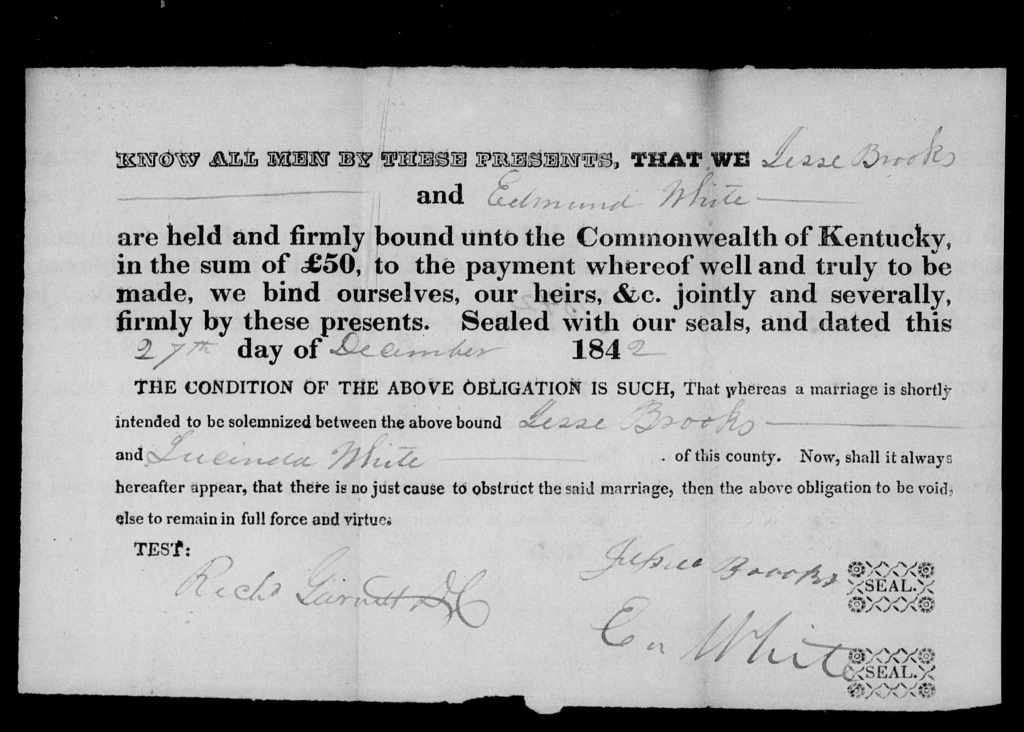 KNOW ALL MEN BY THESE PRESENTS, THAT WE Jesse Brooks
and Edmund White
are held and firmly bound unto the Commonwealth of Kentucky,
in the sum of £50, to the payment whereof well and truly to be
made, we bind ourselves, our heirs, &c. jointly and severally,
firmly by these presents. Sealed with our seals, and dated this
27th day of December 1842
THE CONDITION OF THE ABOVE OBLIGATION IS SUCH, That whereas a marriage is shortly
intended to be solemnized between the above bound Jesse Brooks
and Lucinda White of this county. Now, shall it always
hereafter appear, that there is no just cause to obstruct the said marriage, then the above obligation to be void,
else to remain in full force and virtue.
TEST:
Brooks SEAL.
Richd Garnett
White SEAL.